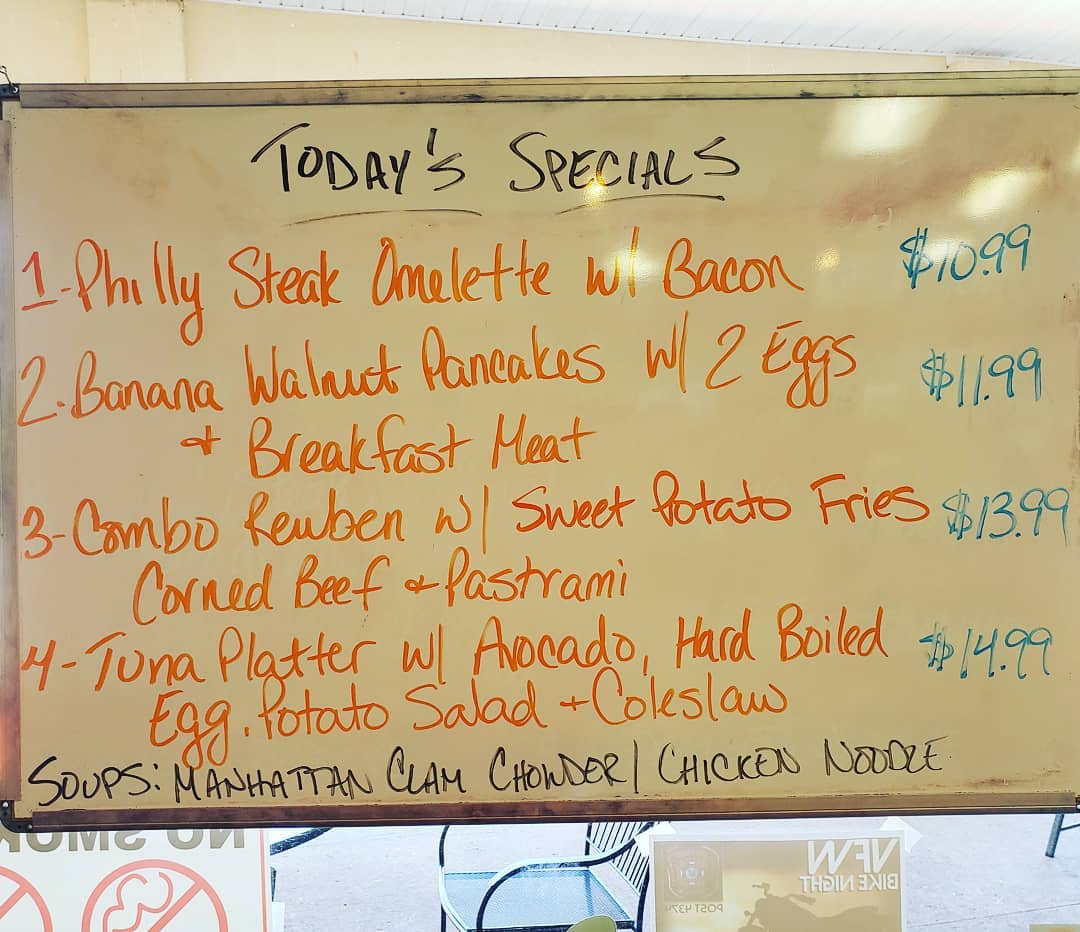 TODAY'S SPECIALS
1-Philly Steak Omelette w/ Bacon $10.99
2.Banana Walnut Pancakes w/ 2 Eggs $11.99
+ Breakfast Meat
3-Combo Reuben w/ Sweet Potato Fries $13.99
Corned Beef + Pastrami
4-Tuna Platter w/ Avocado, Hard Boiled $14.99
Egg. Potato Salad + Coleslaw
SOUPS: MANHATTAN CLAM CHOWDER/ CHICKEN NOODLE
NO SMOK
VFW
BIKE NIGHT
POST 4374